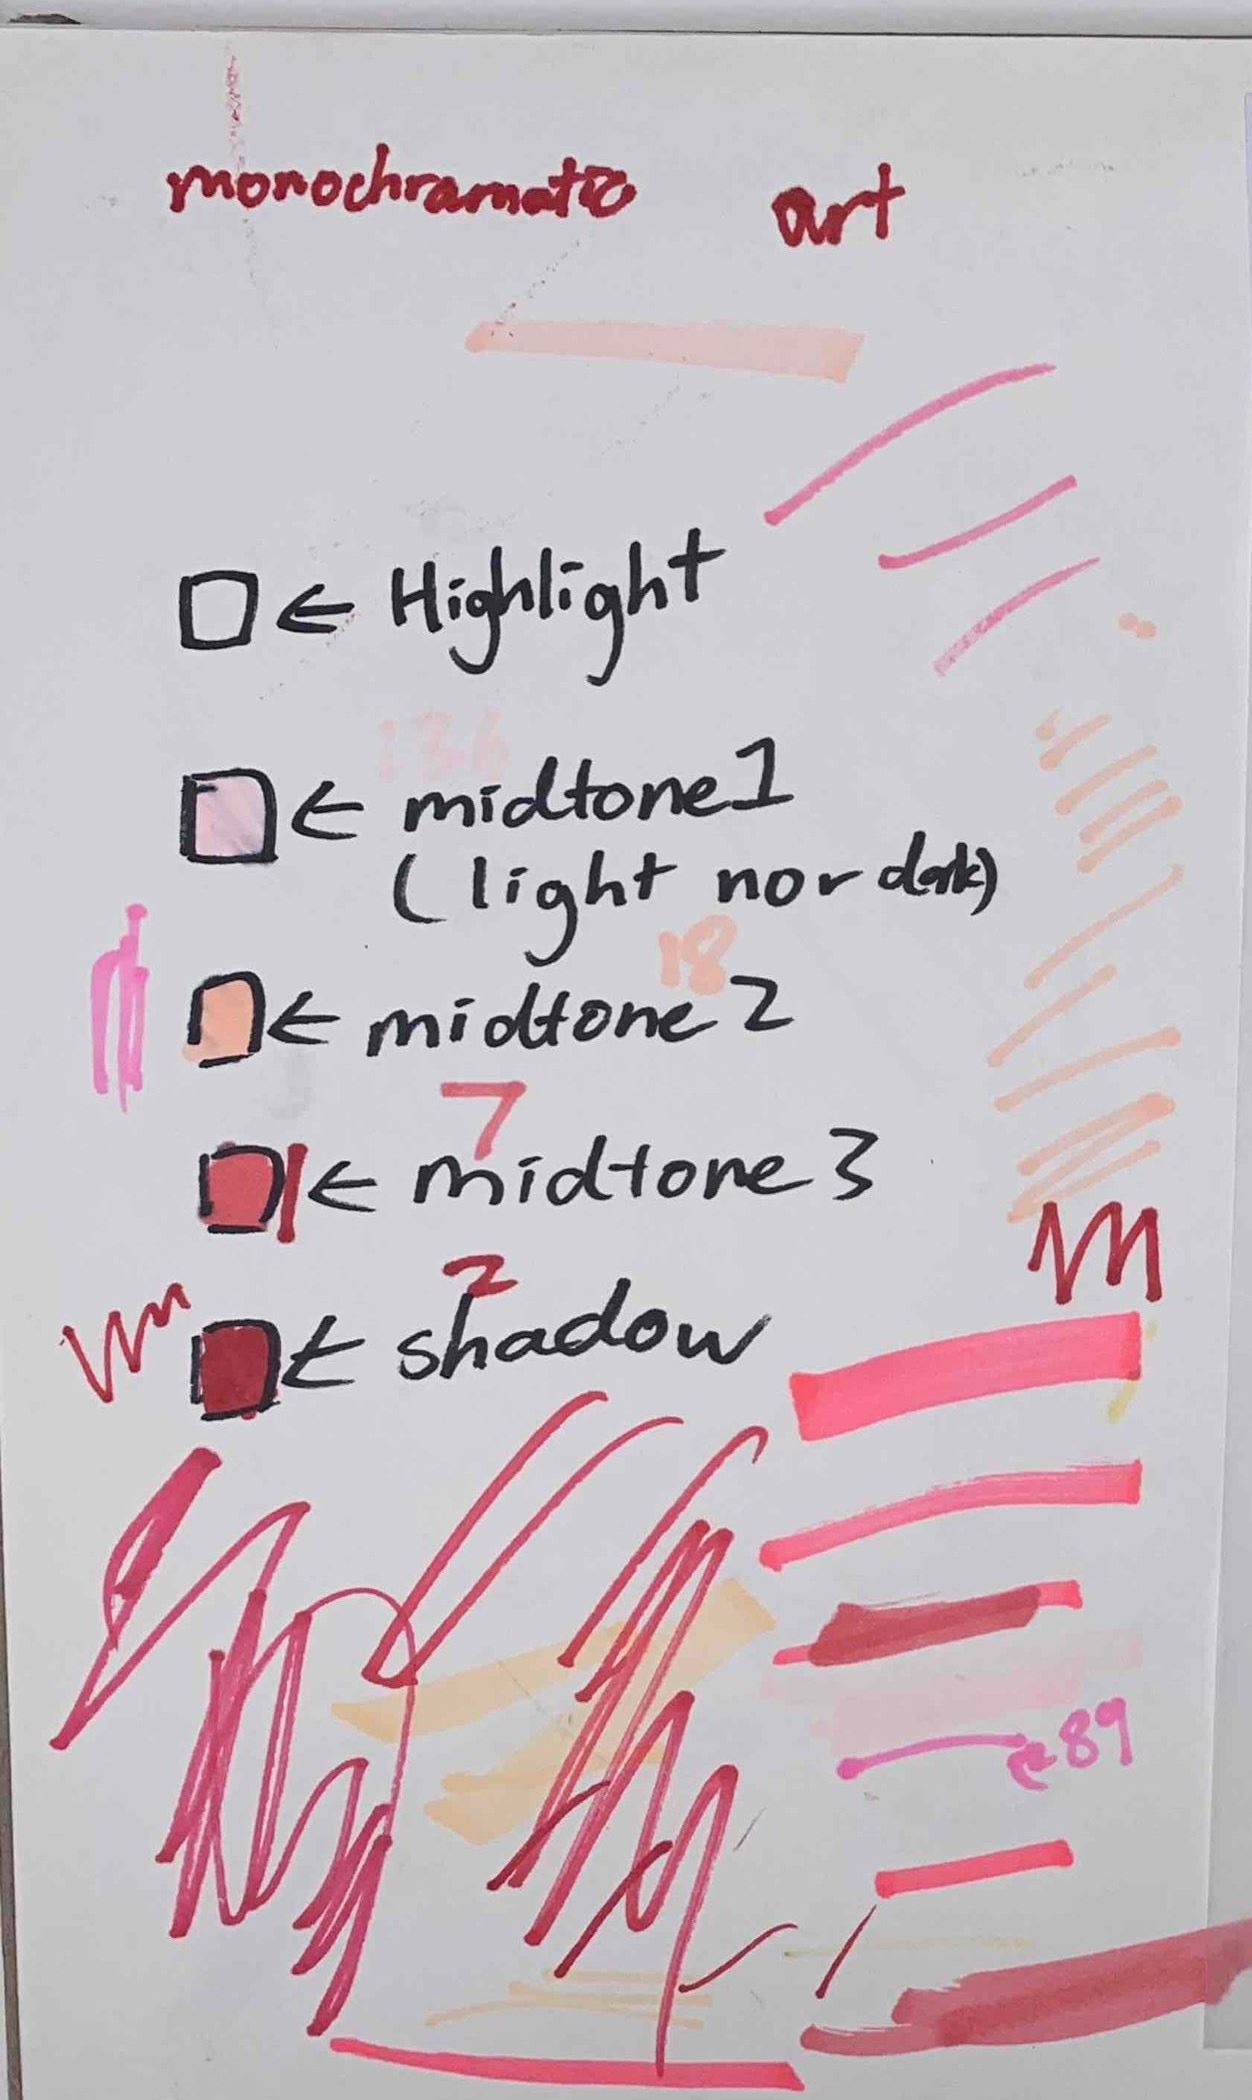 monochramatic art
← Highlight
136
← midtone1
(light nor dark)
18
← midtone 2
7
← midtone 3
2
← shadow
← 89